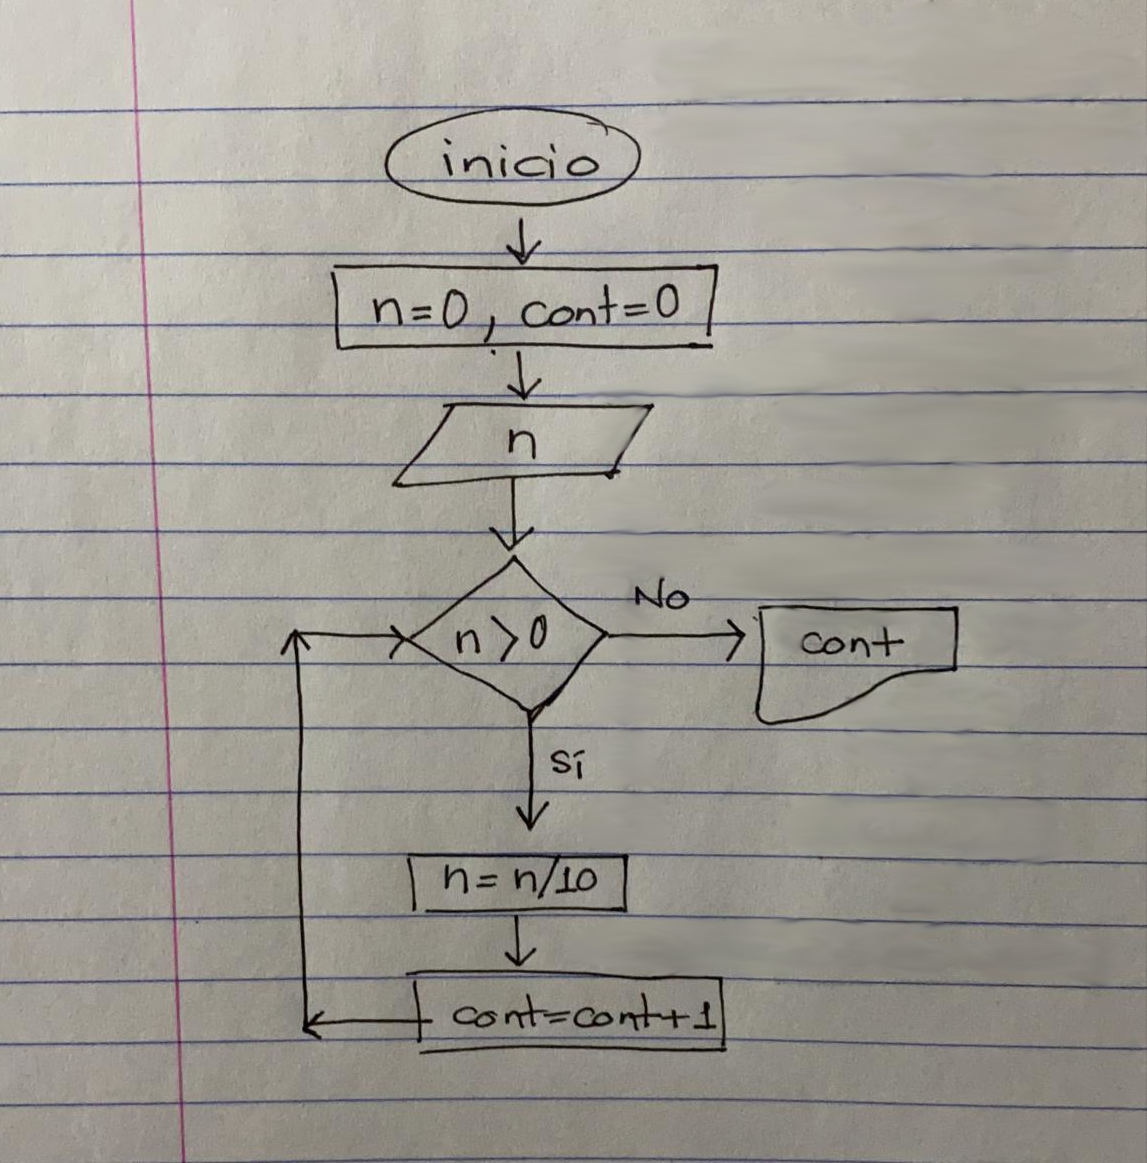 inicio
n=0, cont=0
n
n>0
No
cont
Sí
n= n/10
cont=cont+1